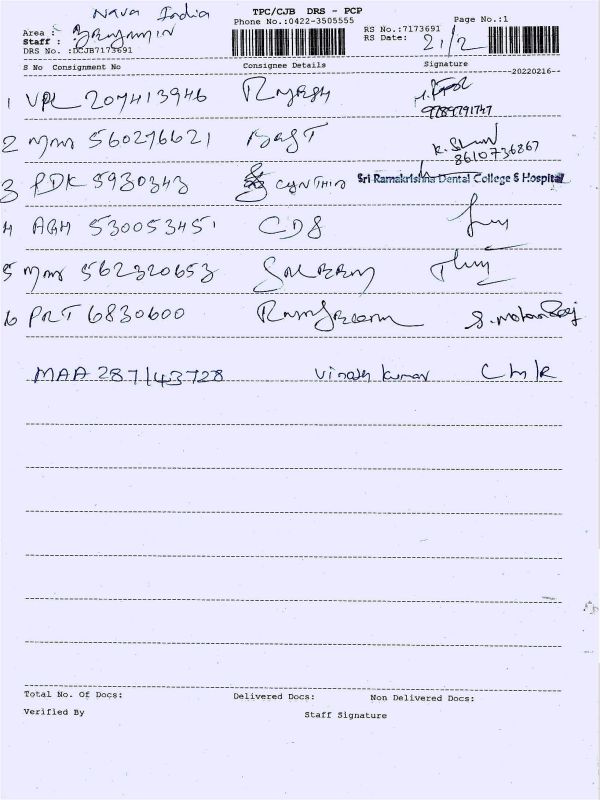 Nava India
TPC/CJB DRS - PCP
Phone No.:0422-3505555
Page No.:1
Area :
Staff : BENJAMIN
DRS No. :DCJB7173691
RS No.:7173691
RS Date: 21/2
S No Consignment No Consignee Details Signature
20220216
1 VPL 207413946 RAJESH
9789791747
2 560276621
8610736867
3 PDK 5930343 CYNTHIA Sri Ramakrishna Dental College & Hospital
4 AGH 530053451 CDS
5 562320653
6 PRT 6830600
MAA 287143728 Vinoth Kumar
Total No. Of Docs: Delivered Docs: Non Delivered Docs:
Verified By Staff Signature